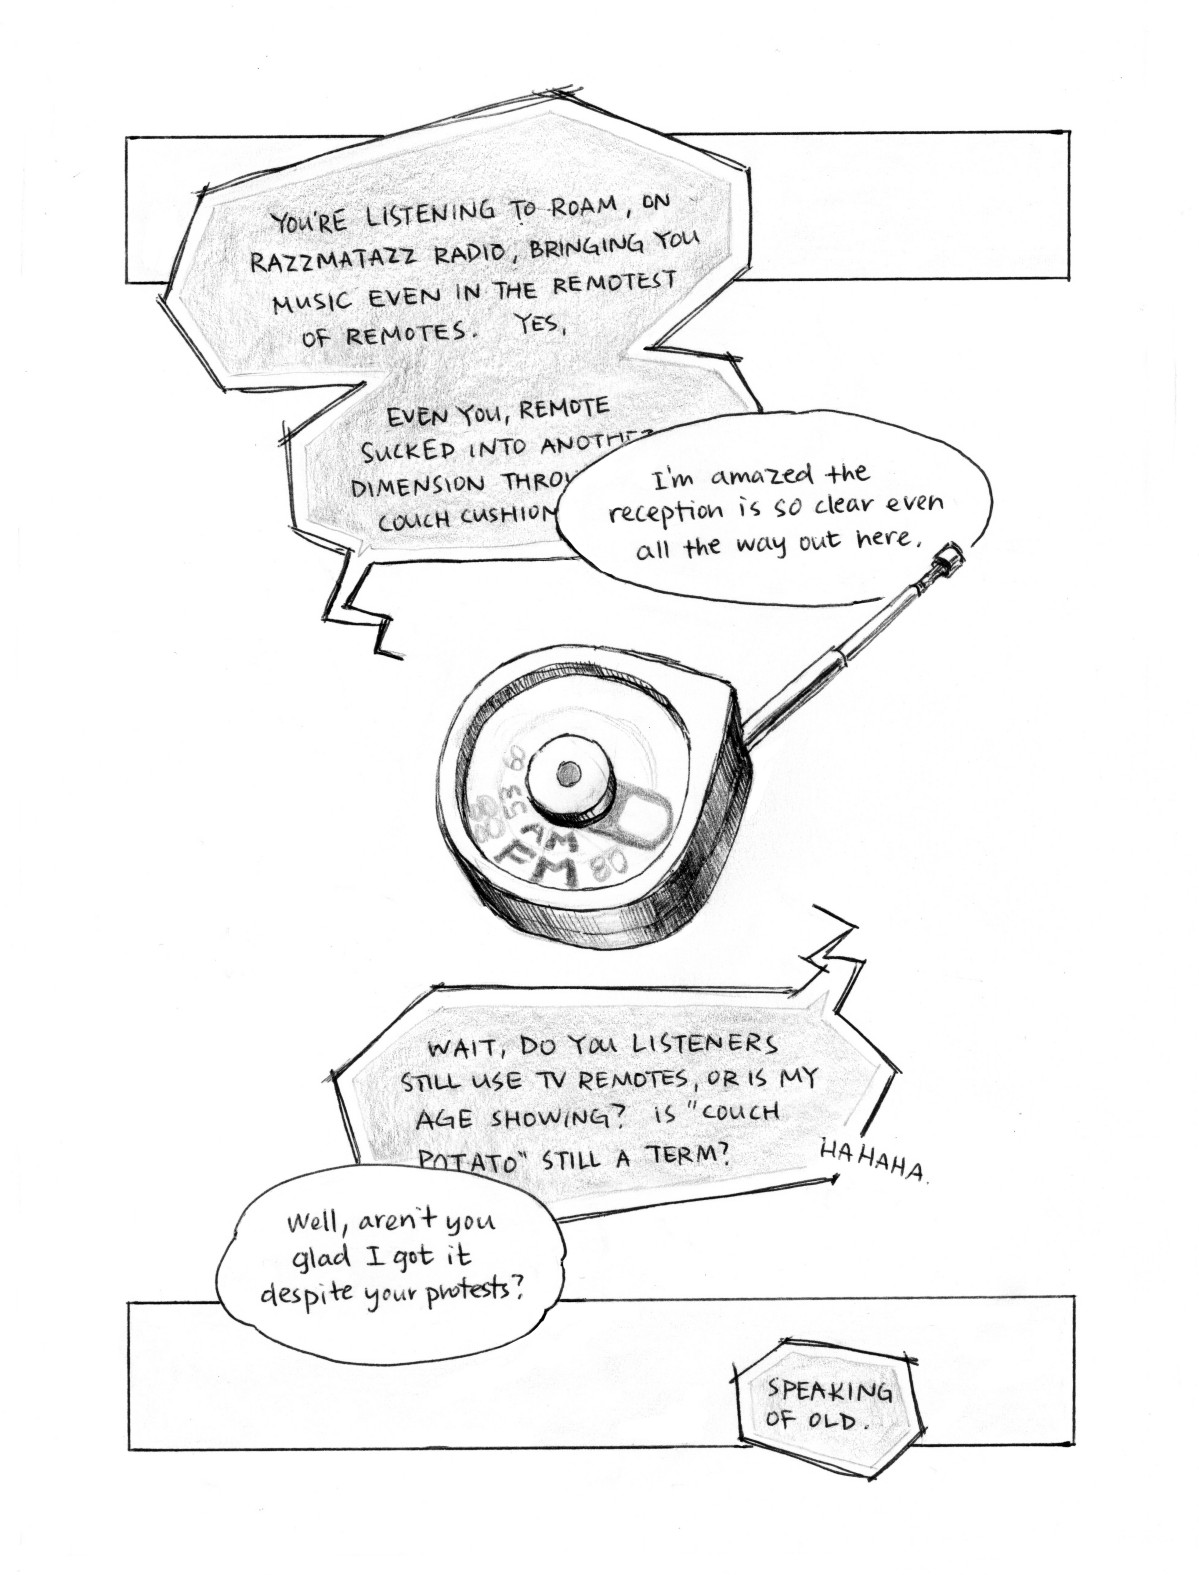 YOU'RE LISTENING TO ROAM, ON
RAZZMATAZZ RADIO, BRINGING YOU
MUSIC EVEN IN THE REMOTEST
OF REMOTES. YES,
EVEN YOU, REMOTE
SUCKED INTO ANOTHER
DIMENSION THROU
COUCH CUSHION
I'm amazed the
reception is so clear even
all the way out here.
60
53
AM
88
FM 80
WAIT, DO YOU LISTENERS
STILL USE TV REMOTES, OR IS MY
AGE SHOWING? IS "COUCH
POTATO" STILL A TERM?
HAHAHA.
Well, aren't you
glad I got it
despite your protests?
SPEAKING
OF OLD.